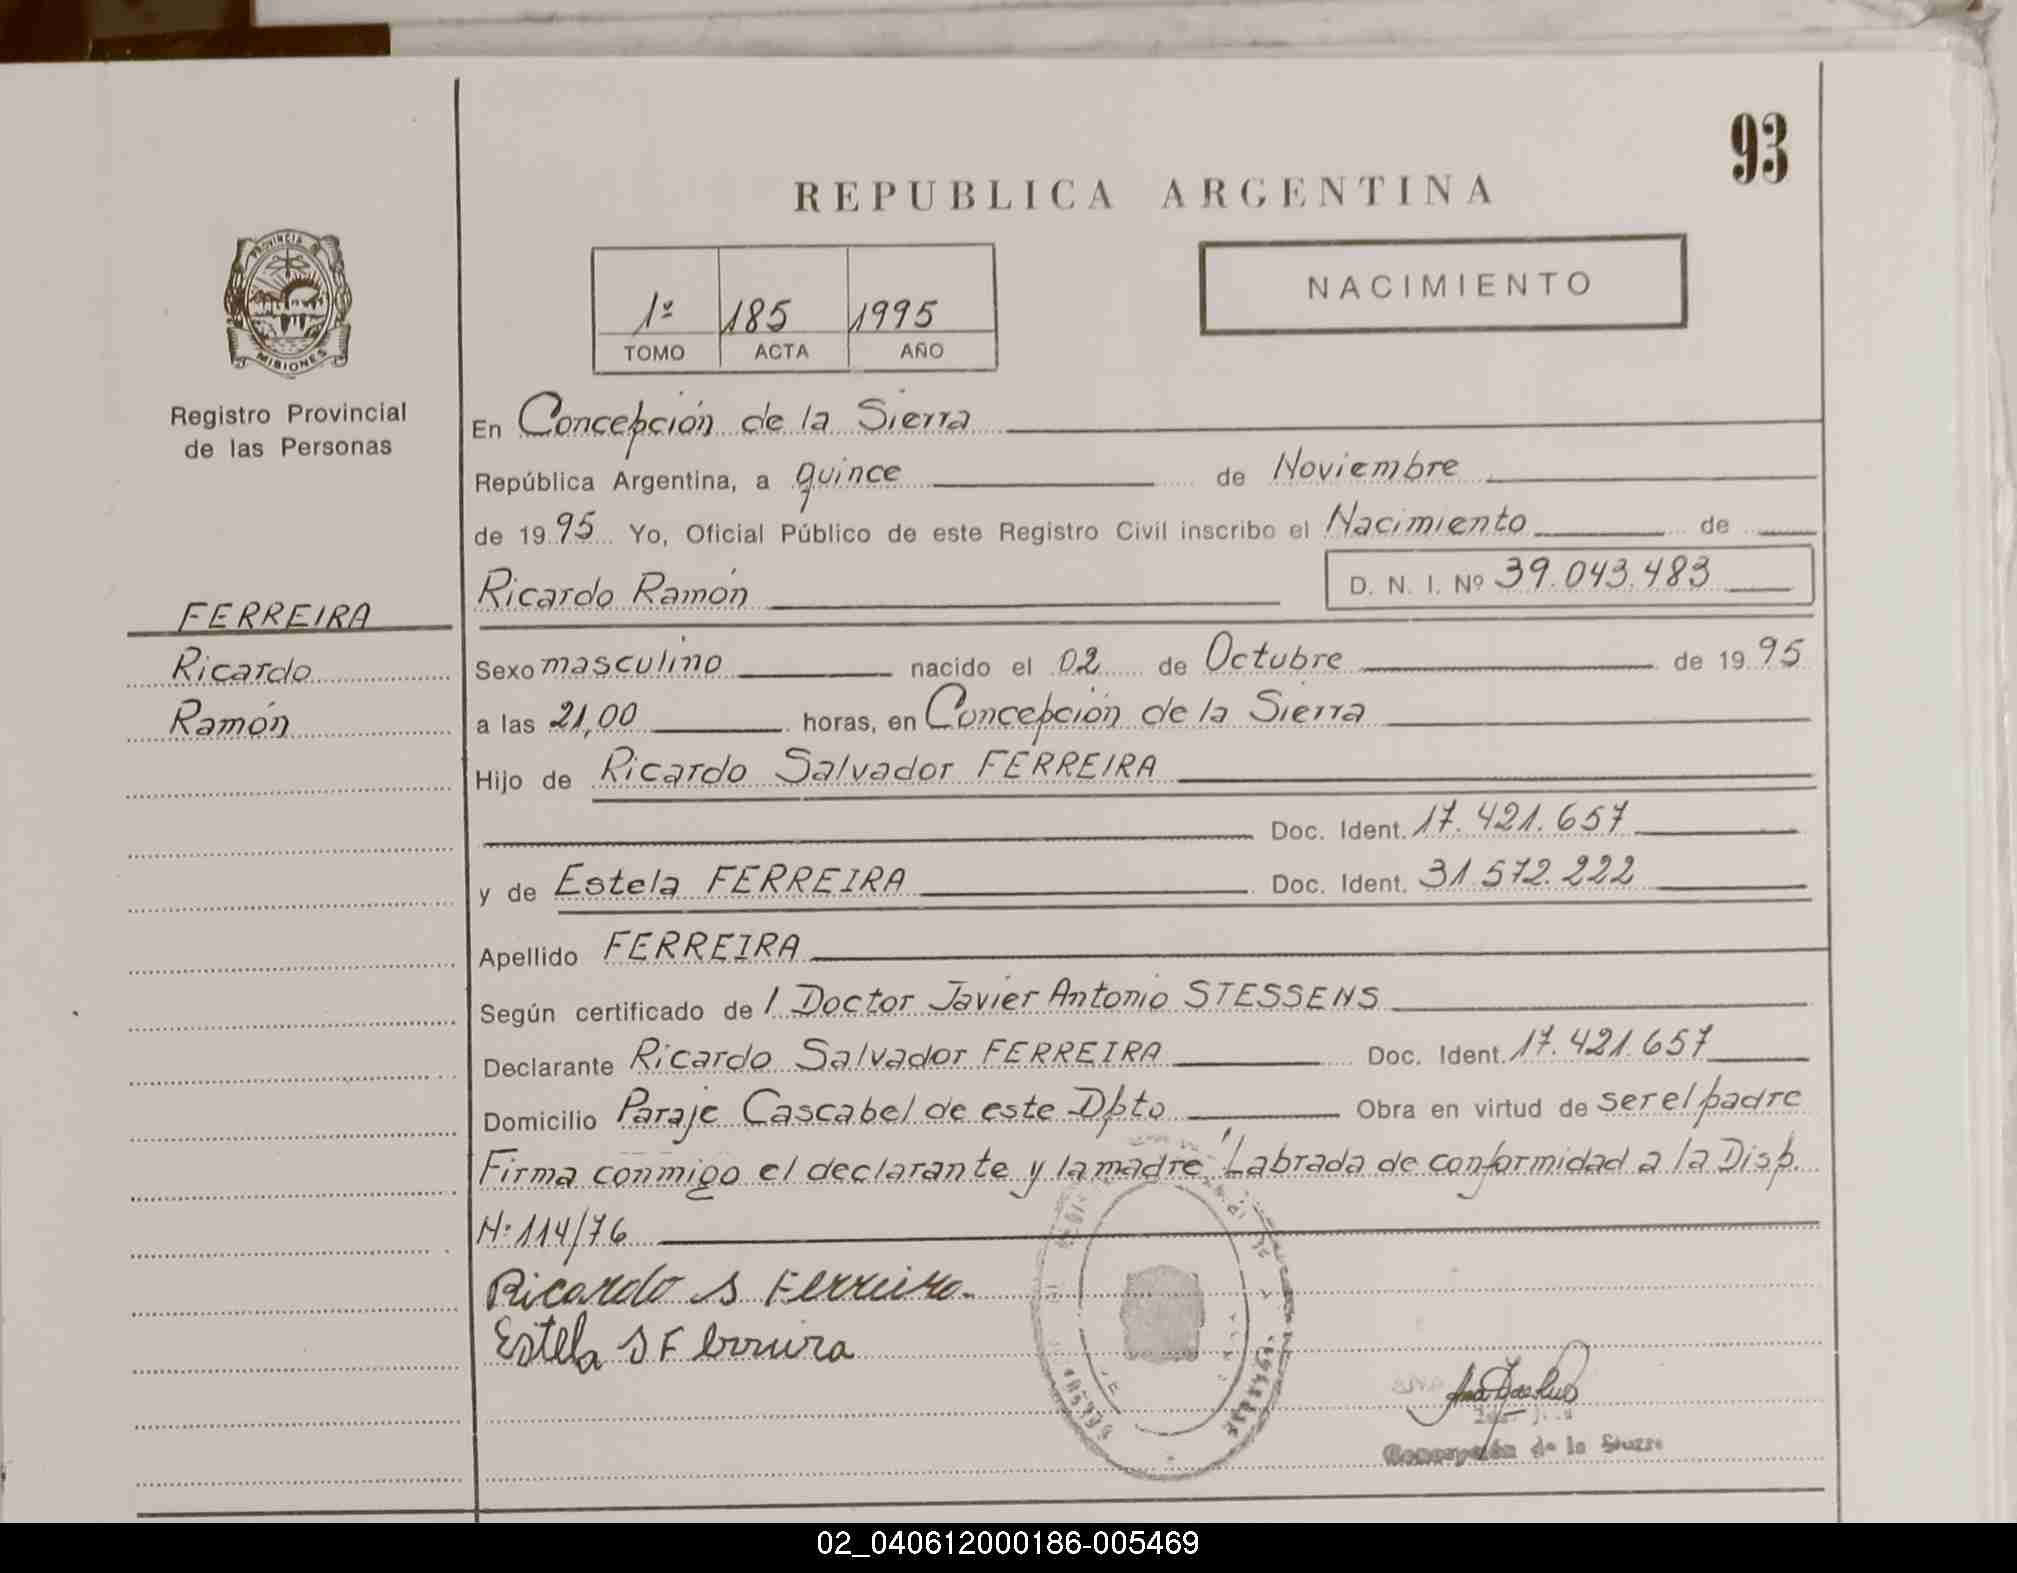 93
REPUBLICA ARGENTINA
PROVINCIA DE
MISIONES
Registro Provincial
de las Personas
1º 185 1995
TOMO ACTA AÑO
NACIMIENTO
En Concepción de la Sierra
República Argentina, a quince de Noviembre
de 1995 Yo, Oficial Público de este Registro Civil inscribo el Nacimiento de
Ricardo Ramón D. N. I. Nº 39.043.483
FERREIRA
Ricardo
Ramón
Sexo masculino nacido el 02 de Octubre de 1995
a las 21,00 horas, en Concepción de la Sierra
Hijo de Ricardo Salvador FERREIRA
Doc. Ident. 17.421.657
y de Estela FERREIRA Doc. Ident. 31.572.222
Apellido FERREIRA
Según certificado de l Doctor Javier Antonio STESSENS
Declarante Ricardo Salvador FERREIRA Doc. Ident. 17.421.657
Domicilio Paraje Cascabel de este Dpto Obra en virtud de ser el padre
Firma conmigo el declarante y la madre "Labrada de conformidad a la Disp.
N: 114/76
Ricardo S Ferreira.
Estela S Ferreira
Concepción de la Sierra
02_040612000186-005469